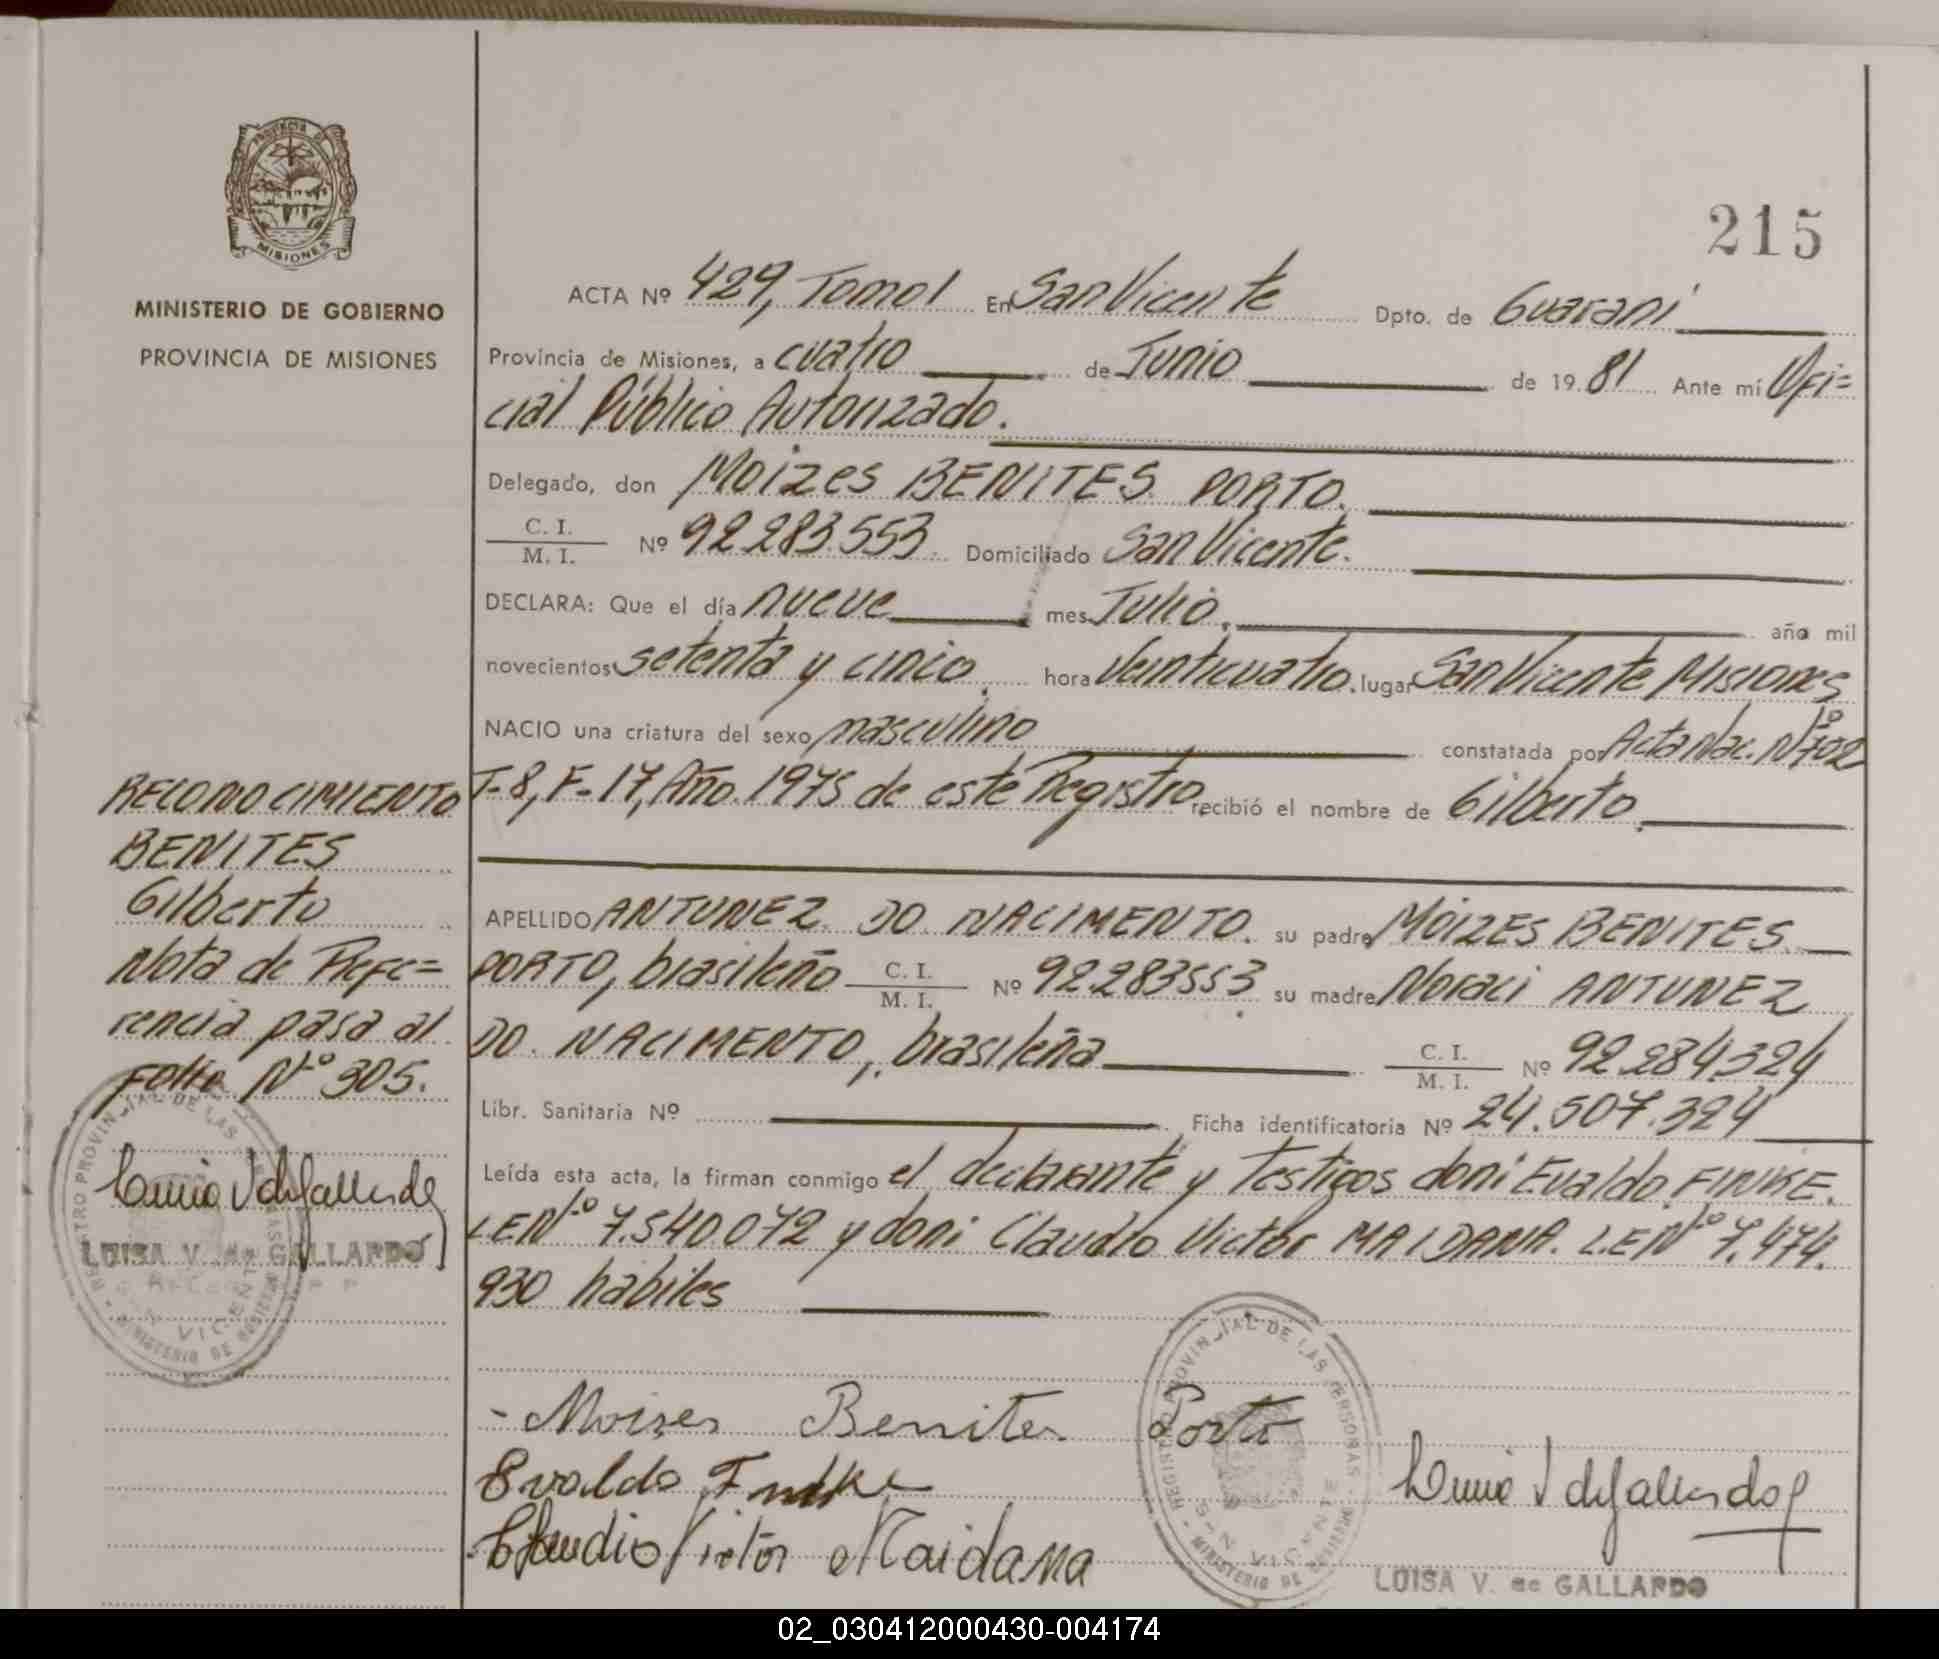 215
PROVINCIA DE
MISIONES
MINISTERIO DE GOBIERNO
PROVINCIA DE MISIONES
ACTA Nº 429, Tomo I En San Vicente Dpto. de Guaraní
Provincia de Misiones, a cuatro de Junio de 1981 Ante mí Ofi=
cial Público Autorizado.
Delegado, don Moizes BENITES PORTO.
C. I.
M. I. Nº 92.283.553. Domiciliado San Vicente.
DECLARA: Que el día nueve mes Julio, año mil
novecientos setenta y cinco, hora veinticuatro. lugar San Vicente, Misiones
NACIO una criatura del sexo masculino constatada por Acta Nac. Nº 702
T-8, F-17, Año 1975 de este Registro, recibió el nombre de Gilberto.
APELLIDO ANTUNEZ DO NACIMENTO. su padre MOIZES BENITES
PORTO, brasileño C. I.
M. I. Nº 92.283553 su madre Noraci ANTUNEZ
DO NACIMENTO, brasileña C. I.
M. I. Nº 92.284.324
Libr. Sanitaria Nº Ficha identificatoria Nº 24.507.324
Leída esta acta, la firman conmigo el declarante y Testigos don: Evaldo FINKE.
LE Nº 7.540.072 y don: Claudio Victor MAIDANA. L.E Nº 7.474.
930 hábiles
RECONOCIMIENTO
BENITES
Gilberto
Nota de Refe=
rencia pasa al
Folio Nº 305.
LUISA V. de GALLARDO
REGISTRO PROVINCIAL DE LAS PERSONAS
SAN VICENTE
MINISTERIO DE GOBIERNO
- Moises Benites Porto
Evaldo Finke
Claudio Victor Maidana
REGISTRO PROVINCIAL DE LAS PERSONAS
SAN VICENTE
MINISTERIO DE GOBIERNO
LUISA V. de GALLARDO
02_030412000430-004174